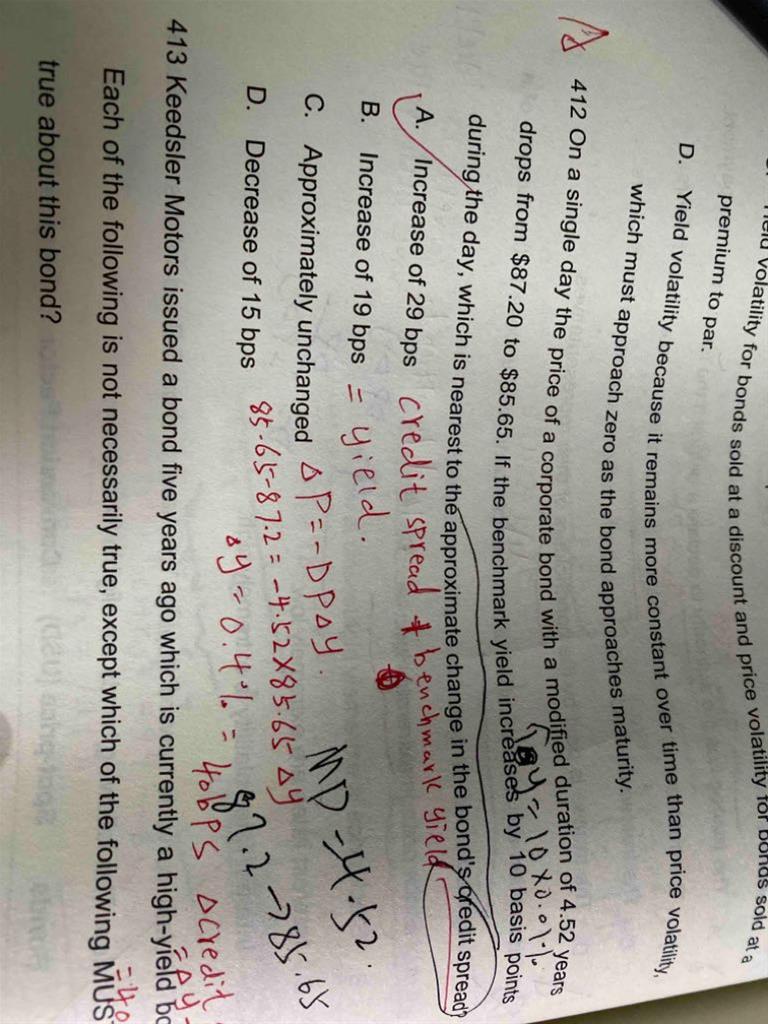 volatility for bonds sold at a discount and price volatility for bonds sold at a
premium to par.
D. Yield volatility because it remains more constant over time than price volatility,
which must approach zero as the bond approaches maturity.
412 On a single day the price of a corporate bond with a modified duration of 4.52 years
drops from $87.20 to $85.65. If the benchmark yield increases by 10 basis points
during the day, which is nearest to the approximate change in the bond's credit spread?
A. Increase of 29 bps
B. Increase of 19 bps
C. Approximately unchanged
D. Decrease of 15 bps
y = 10 × 0.01%
credit spread + benchmark yield
= yield.
ΔP = -DPΔy.
85.65-87.2 = -4.52×85.65 Δy
Δy = 0.4% = 40bps
MD = 4.52.
87.2 → 85.65
Δcredit
= Δy -
= 40
413 Keedsler Motors issued a bond five years ago which is currently a high-yield bo
Each of the following is not necessarily true, except which of the following MUS
true about this bond?